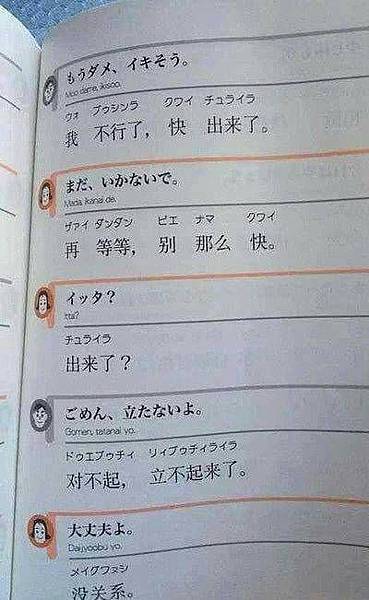 もうダメ、イキそう。
Moo dame, ikisoo.
ウォ ブゥシンラ クワイ チュライラ
我 不行了, 快 出来了。
まだ、いかないで。
Mada, ikanai de.
ヅァイ ダンダン ビエ ナマ クワイ
再 等等, 别 那么 快。
イッタ？
Itta?
チュライラ
出来了？
ごめん、立たないよ。
Gomen, tatanai yo.
ドゥエブゥチィ リィブゥチィライラ
对不起, 立不起来了。
大丈夫よ。
Daijyoobu yo.
メイグワヌシ
没关系。